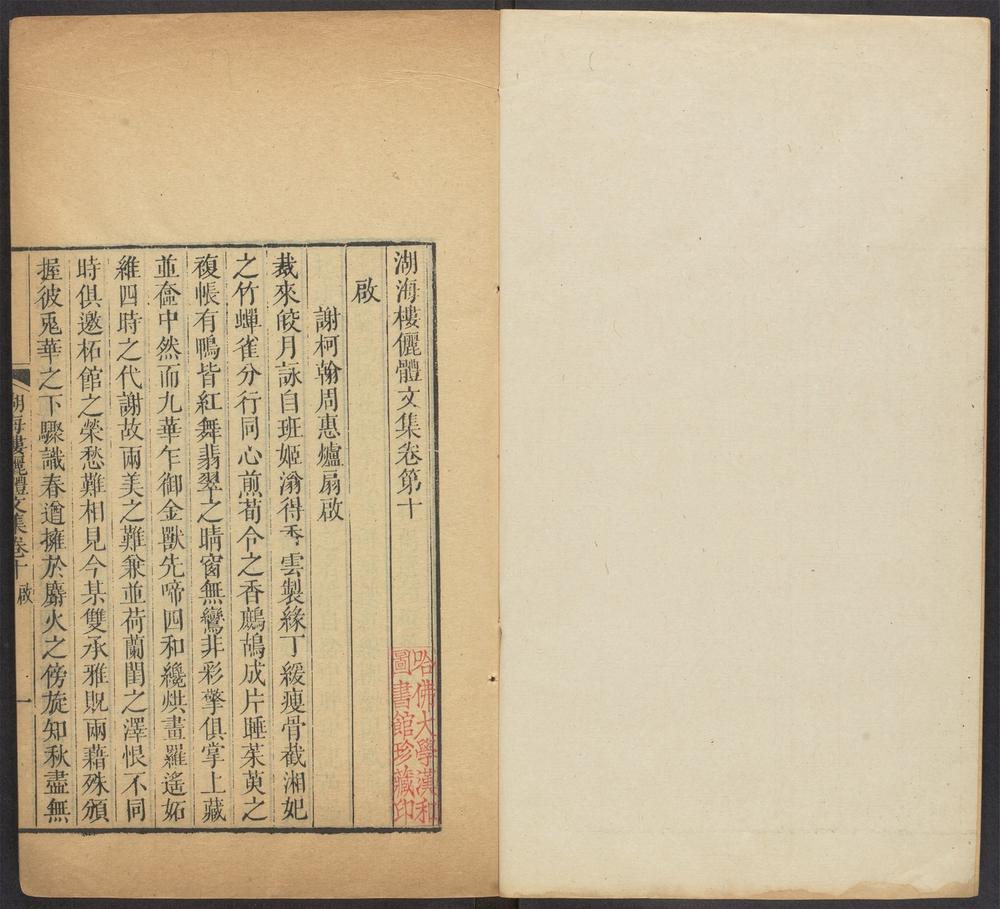 湖海樓儷體文集卷第十
啟
謝柯翰周惠爐扇啟
裁來皎月詠自班姬滃得香雲製緣丁緩瘦骨截湘妃
之竹蟬雀分行同心煎荀令之香鷓鴣成片睡茱萸之
複帳有鴨皆紅舞翡翠之晴窗無鸞非彩擎俱掌上藏
並奩中然而九華乍御金獸先啼四和纔烘畫羅遙妬
維四時之代謝故兩美之難兼並荷蘭閨之澤恨不同
時俱邀柘館之榮愁難相見今某雙承雅貺兩藉殊頒
握彼兎華之下驟識春遒擁於麝火之傍旋知秋盡無
湖海樓儷體文集卷十 啟 一
哈佛大學漢和
圖書館珍藏印